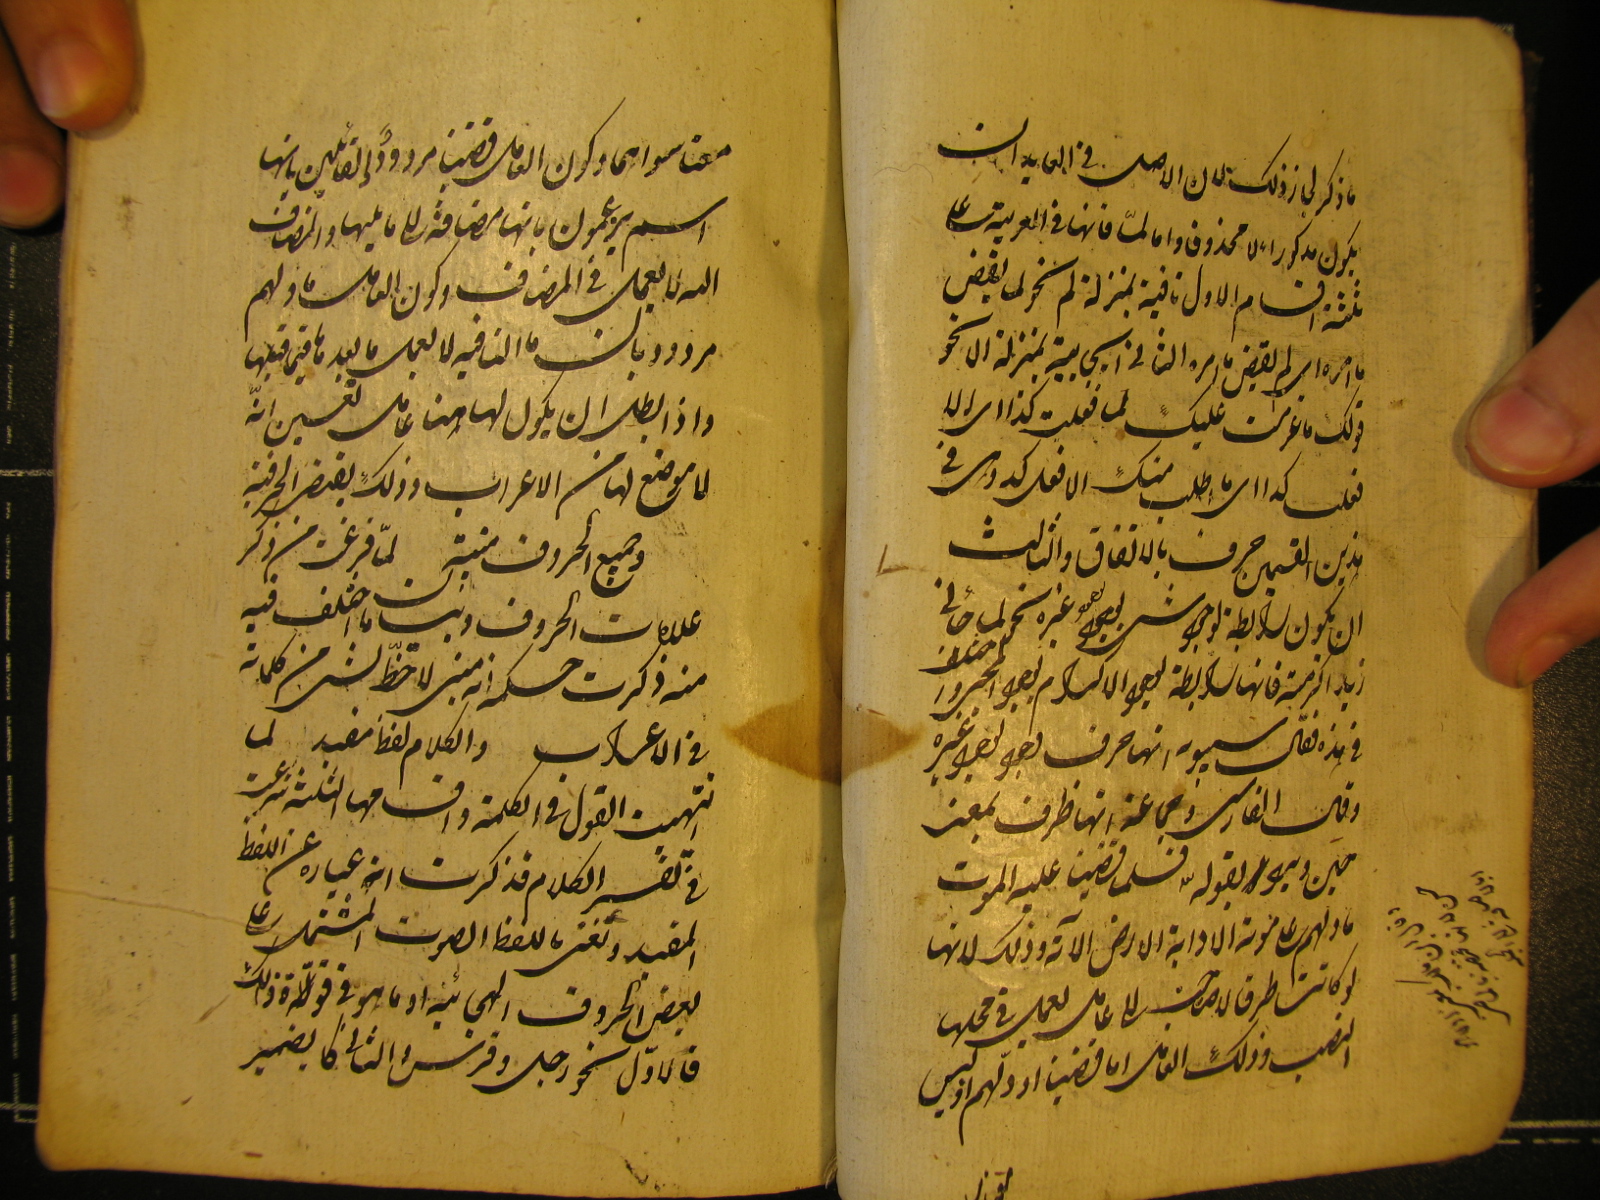 ما ذكر لجاز ذلك لان الاصل في العايد ان
يكون مذكورا لا محذوفا واما لمّا فانها في العربية على
ثلثة اقسام الاول نافية بمنزلة لم نحو لما يقض
ما امره اى لم يقض ما امره الثانى ايجابية بمنزلة الا نحو
قولك عزمت عليك لما فعلت كذا اى الا
فعلت كذا اى ما اطلب منك الا فعل كذا وهى في
هذين القسمين حرف بالاتفاق والثالث
ان يكون رابطة لوجود شىء بوجود غيره نحو لما جائنى
زيد اكرمته فانها رابطة لوجود الاكرام بوجود المجىء واختلف
في هذه فقال سيبويه انها حرف وجود لوجود غيره
وقال الفارسى وجماعة انها ظرف بمعنى
حين ورد بقوله فلما قضينا عليه الموت
ما دلهم على موته الا دابة الارض الآية وذلك لانها
لو كانت ظرفا لاحتاجت الى عامل يعمل في محلها
النصب وذلك العامل اما قضينا او دلهم اذ ليس
معنا سواهما وكون العامل قضينا مردود لان القائلين بانها
اسم يزعمون بانها مضافة الى ما يليها والمضاف
اليه لا يعمل في المضاف وكون العامل ما دلهم
مردود بان ما النافية لا يعمل ما بعدها فيما قبلها
واذا بطل ان يكون لها ههنا عامل تعين انّه
لا موضع لها من الاعراب وذلك يقتضى الحرفية
وجميع الحروف مبنية لمّا فرغت من ذكر
علامات الحروف وبيان ما اختلف فيه
منه ذكرت حكمه انه مبنى لا حظّ لشىء من كلماته
في الاعراب والكلام لفظ مفيد لما
انتهيت القول في الكلمة واقسامها الثلثة شرعت
في تفسير الكلام فذكرت انه عبارة عن اللفظ
المفيد ونعنى باللفظ الصوت المشتمل على
بعض الحروف الهجائية او ما هو في قوة ذلك
فالاوّل نحو رجل وفرس والثانى كالضمير